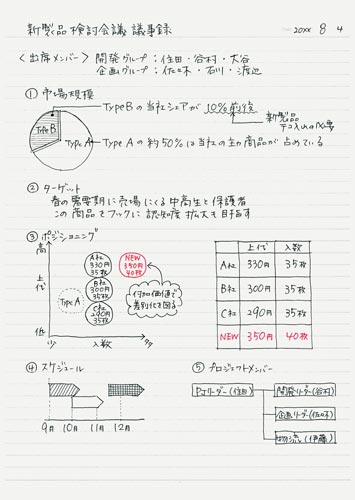 新製品検討会議 議事録
20XX 8 4
〈出席メンバー〉 開発グループ：住田・谷村・大谷
企画グループ：佐々木・石川・渡辺
① 市場規模
TypeBの当社シェアが10%前後
新製品
テコ入れの必要
Type B
Type A
Type Aの約50%は当社の主力商品が占めている
② ターゲット
春の需要期に売場にくる中高生と保護者
この商品をフックに認知度拡大も目指す
③ ポジショニング
高
上代
低
少
入数
多
A社
330円
35枚
NEW
350円
40枚
B社
300円
35枚
Type A
C社
290円
35枚
付加価値で
差別化を図る
上代 入数
A社 330円 35枚
B社 300円 35枚
C社 290円 35枚
NEW 350円 40枚
④ スケジュール
9月 10月 11月 12月
⑤ プロジェクトメンバー
PJリーダー(住田)
開発リーダー(谷村)
企画リーダー(佐々木)
物流(伊藤)